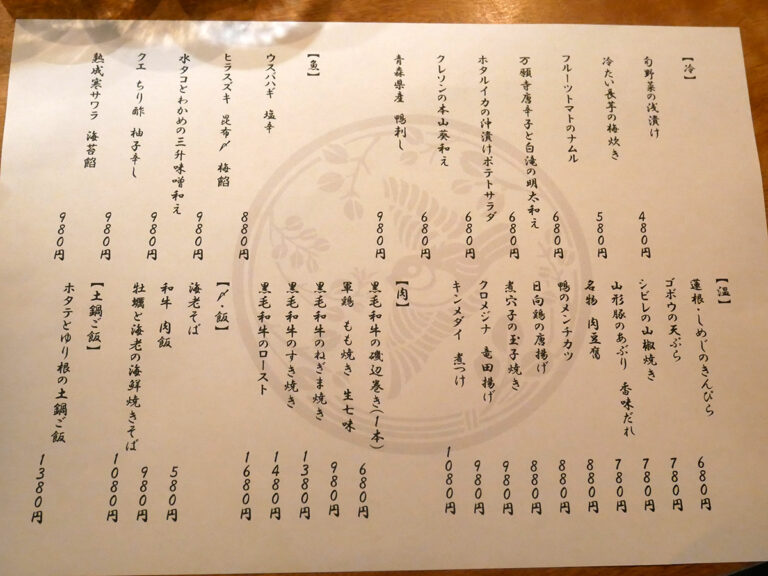 【冷】
旬野菜の浅漬け 480円
冷たい長芋の梅炊き 580円
フルーツトマトのナムル 680円
万願寺唐辛子と白滝の明太和え 680円
ホタルイカの沖漬けポテトサラダ 680円
クレソンの本山葵和え 680円
青森県産 鴨刺し 980円
【魚】
ウスバハギ 塩辛 880円
ヒラスズキ 昆布〆 梅餡 980円
水タコとわかめの三升味噌和え 980円
クエ ちり酢 柚子辛し 980円
熟成寒サワラ 海苔餡 980円
【温】
蓮根・しめじのきんぴら 680円
ゴボウの天ぷら 780円
シビレの山椒焼き 780円
山形豚のあぶり 香味だれ 780円
名物 肉豆腐 880円
鴨のメンチカツ 880円
日向鶏の唐揚げ 880円
煮穴子の玉子焼き 980円
クロメジナ 竜田揚げ 980円
キンメダイ 煮つけ 1080円
【肉】
黒毛和牛の磯辺巻き(1本) 680円
軍鶏 もも焼き 生七味 980円
黒毛和牛のねぎま焼き 1380円
黒毛和牛のすき焼き 1480円
黒毛和牛のロースト 1680円
【〆・飯】
海老そば 580円
和牛 肉飯 980円
牡蠣と海老の海鮮焼きそば 1080円
【土鍋ご飯】
ホタテとゆり根の土鍋ご飯 1380円